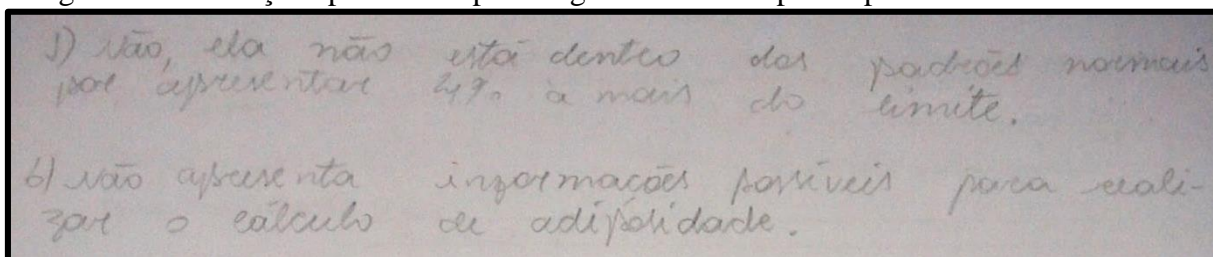 5) Não, ela não está dentro dos padrões normais
por apresentar 4% à mais do limite.
6) Não apresenta informações possíveis para reali-
zar o cálculo de adiposidade.